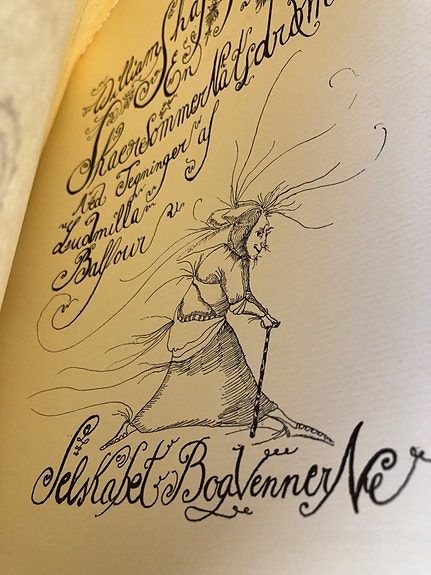 William Sha
En
SkaerSommerNatsdrøm
Med Tegninger af
Ludmilla
Balfour
Selskabet BogVennerNe